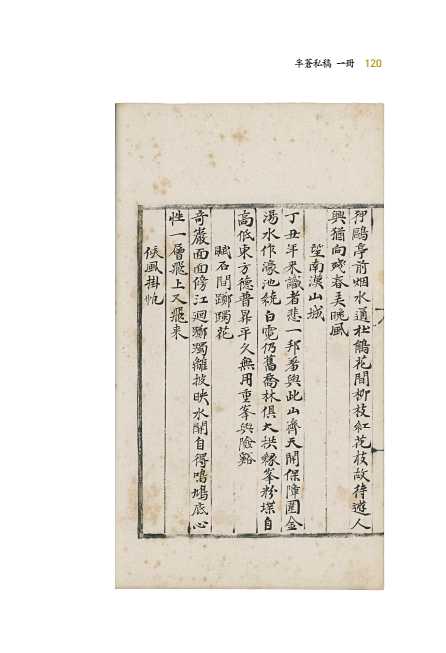 半蒼私稿 一冊 120
狎鷗亭前烟水通杜鵑花間柳枝紅花枝故待遊人
興猶向殘春美晚風
望南漢山城
丁丑年来識者悲一邦蕃與此山濟天開保障圍金
湯水作濠池繞白電仍舊喬林俱大拱緣峯粉堞自
高低東方德曹昇平久無用重峯與險谿
賦石間躑躅花
奇巖面面傍江迴躑濁離披映水開自得鳴鳩底心
性一層飛上又飛来
候風掛帆